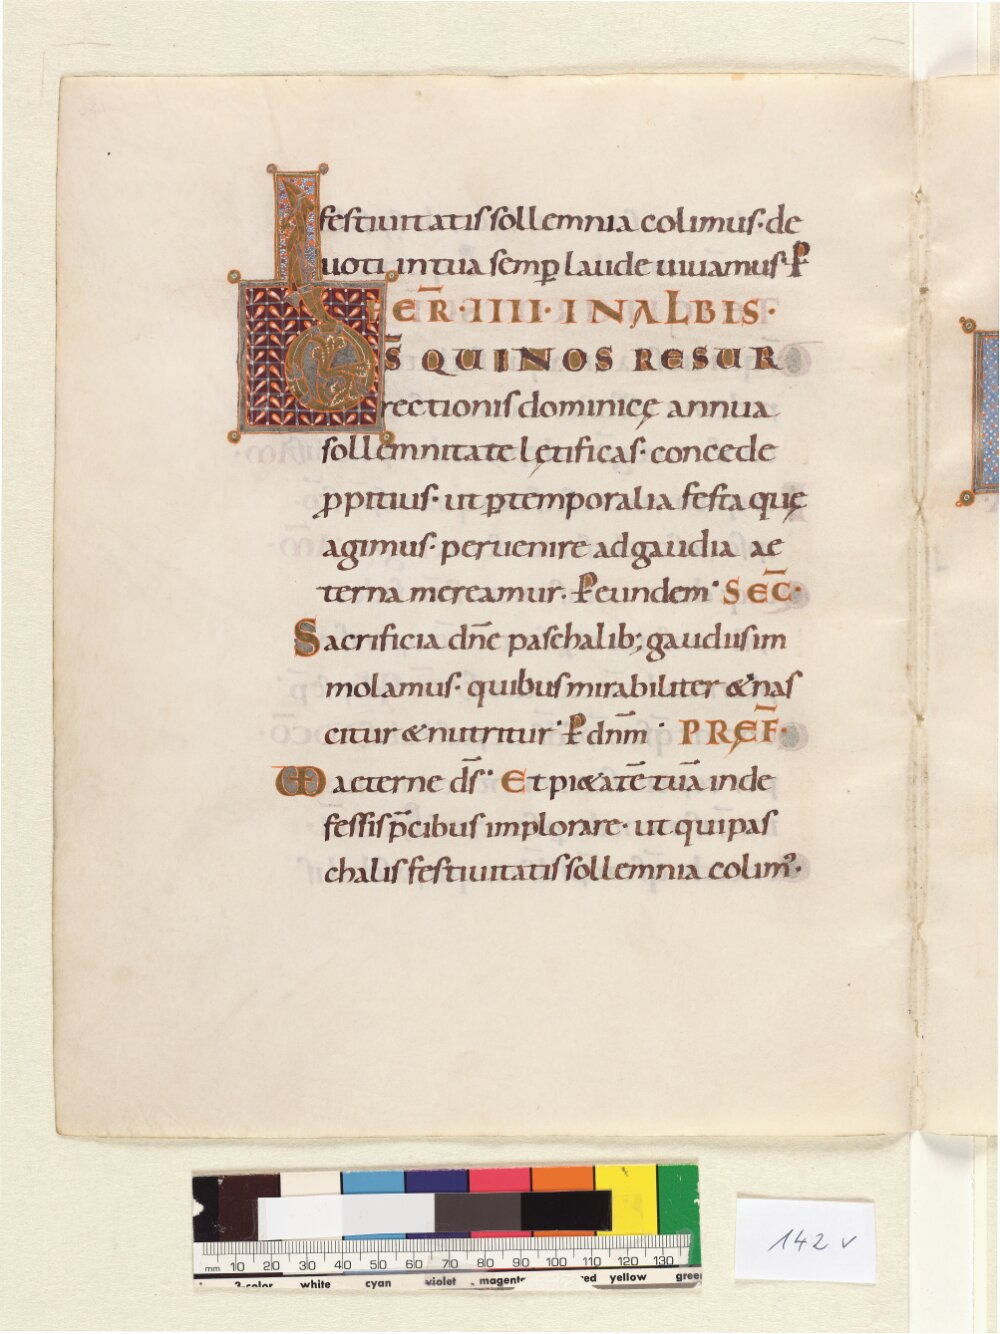 festiuitatis sollemnia colimus· de
uoti in tua semp̲ laude uiuamus· P̲
FER̅·IIII·IN ALBIS·
DS̅ QUI NOS RESUR
rectionis dominicę annua
sollemnitate lętificas· concede
ꝓpitius· ut ꝑ temporalia festa quę
agimus· peruenire ad gaudia ae
terna mereamur· P̲ eundem· SEC̅·
Sacrificia dn̅e paschalib; gaudiis im
molamus· quibus mirabiliter & nas
citur & nutritur· P̲ dn̅m· PRĘF̅·
UD aeterne ds̅· Et pi&ate̅ tua̅ inde
fessis p̅cibus implorare· ut qui pas
chalis festiuitatis sollemnia colim᾿·
142 v
mm 10 20 30 40 50 60 70 80 90 100 110 120 130
3-color white cyan violet magenta red yellow green